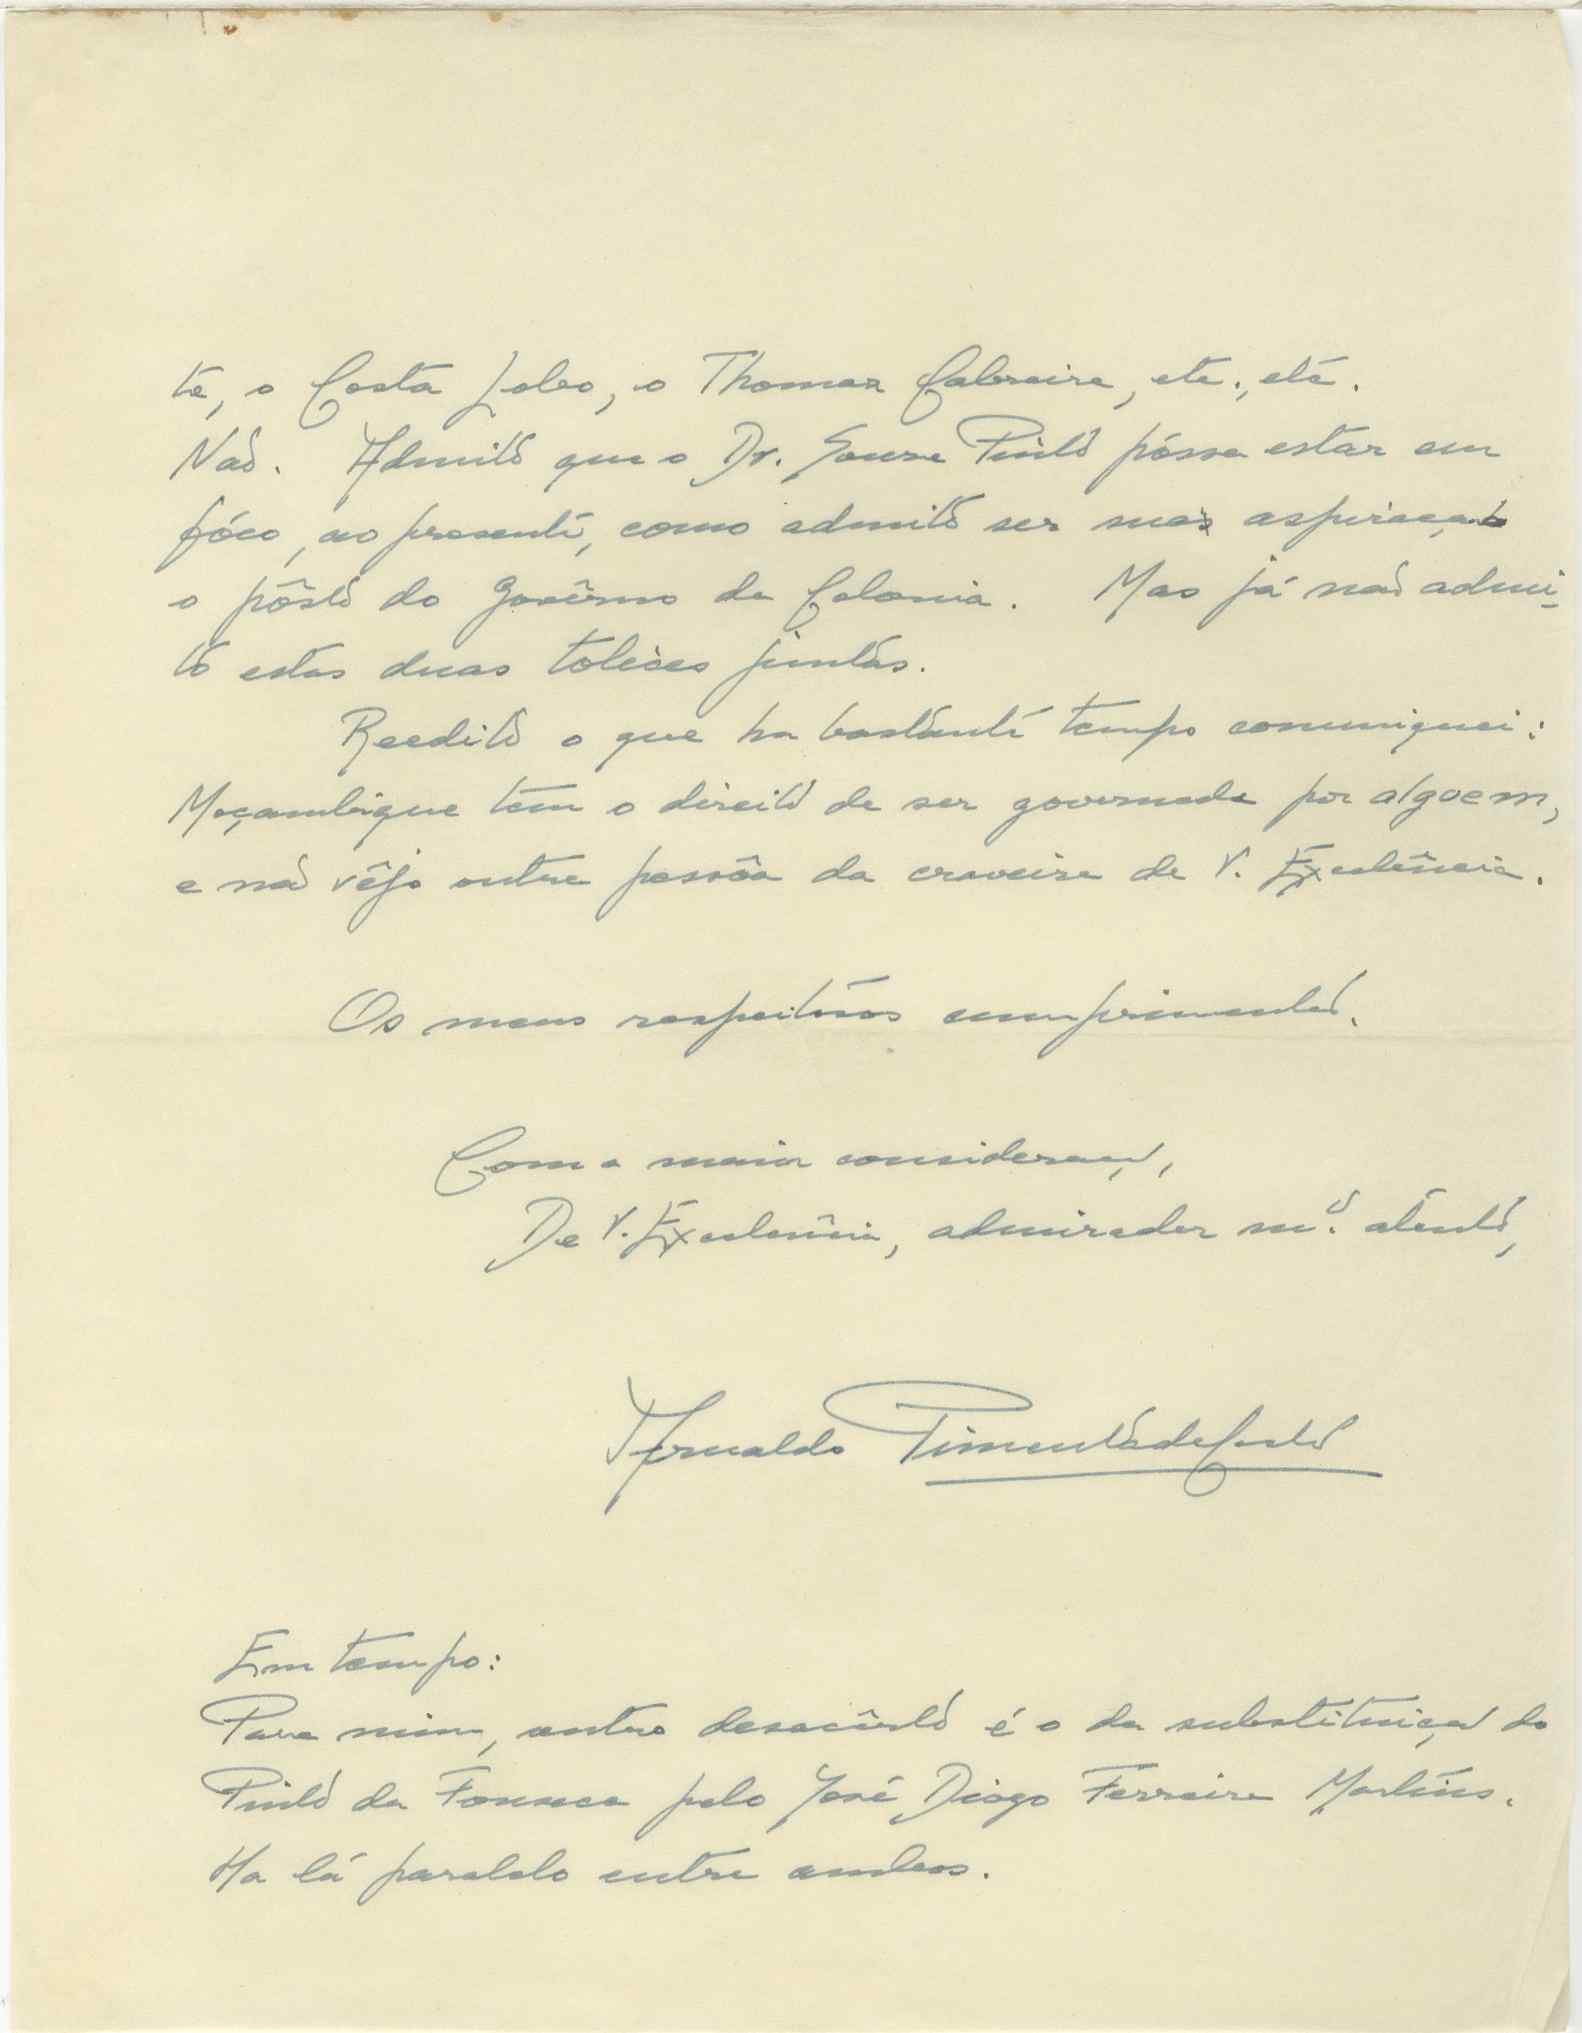 te, o Costa Lobo, o Thomaz Cabreira, etc., etc.
Não. Admito que o Dr. Souza Pinto póssa estar em
fóco, ao presente, como admito ser sua aspiração
o pôsto do Govêrno da Colonia. Mas já não admi-
to estas duas tolices juntas.
Reedito o que ha bastante tempo comuniquei:
Moçambique têm o direito de ser governada por alguem,
e não vêjo outra pessôa da craveira de V. Excelência.
Os meus respeitosos cumprimentos.
Com a maior consideração,
De V. Excelência, admirador mº. atento,
Arnaldo Pimenta de Castro
Em tempo:
Para mim, outro desacêrto é o da substituição do
Pinto da Fonseca pelo José Diogo Ferreira Martins.
Ha lá paralelo entre ambos.